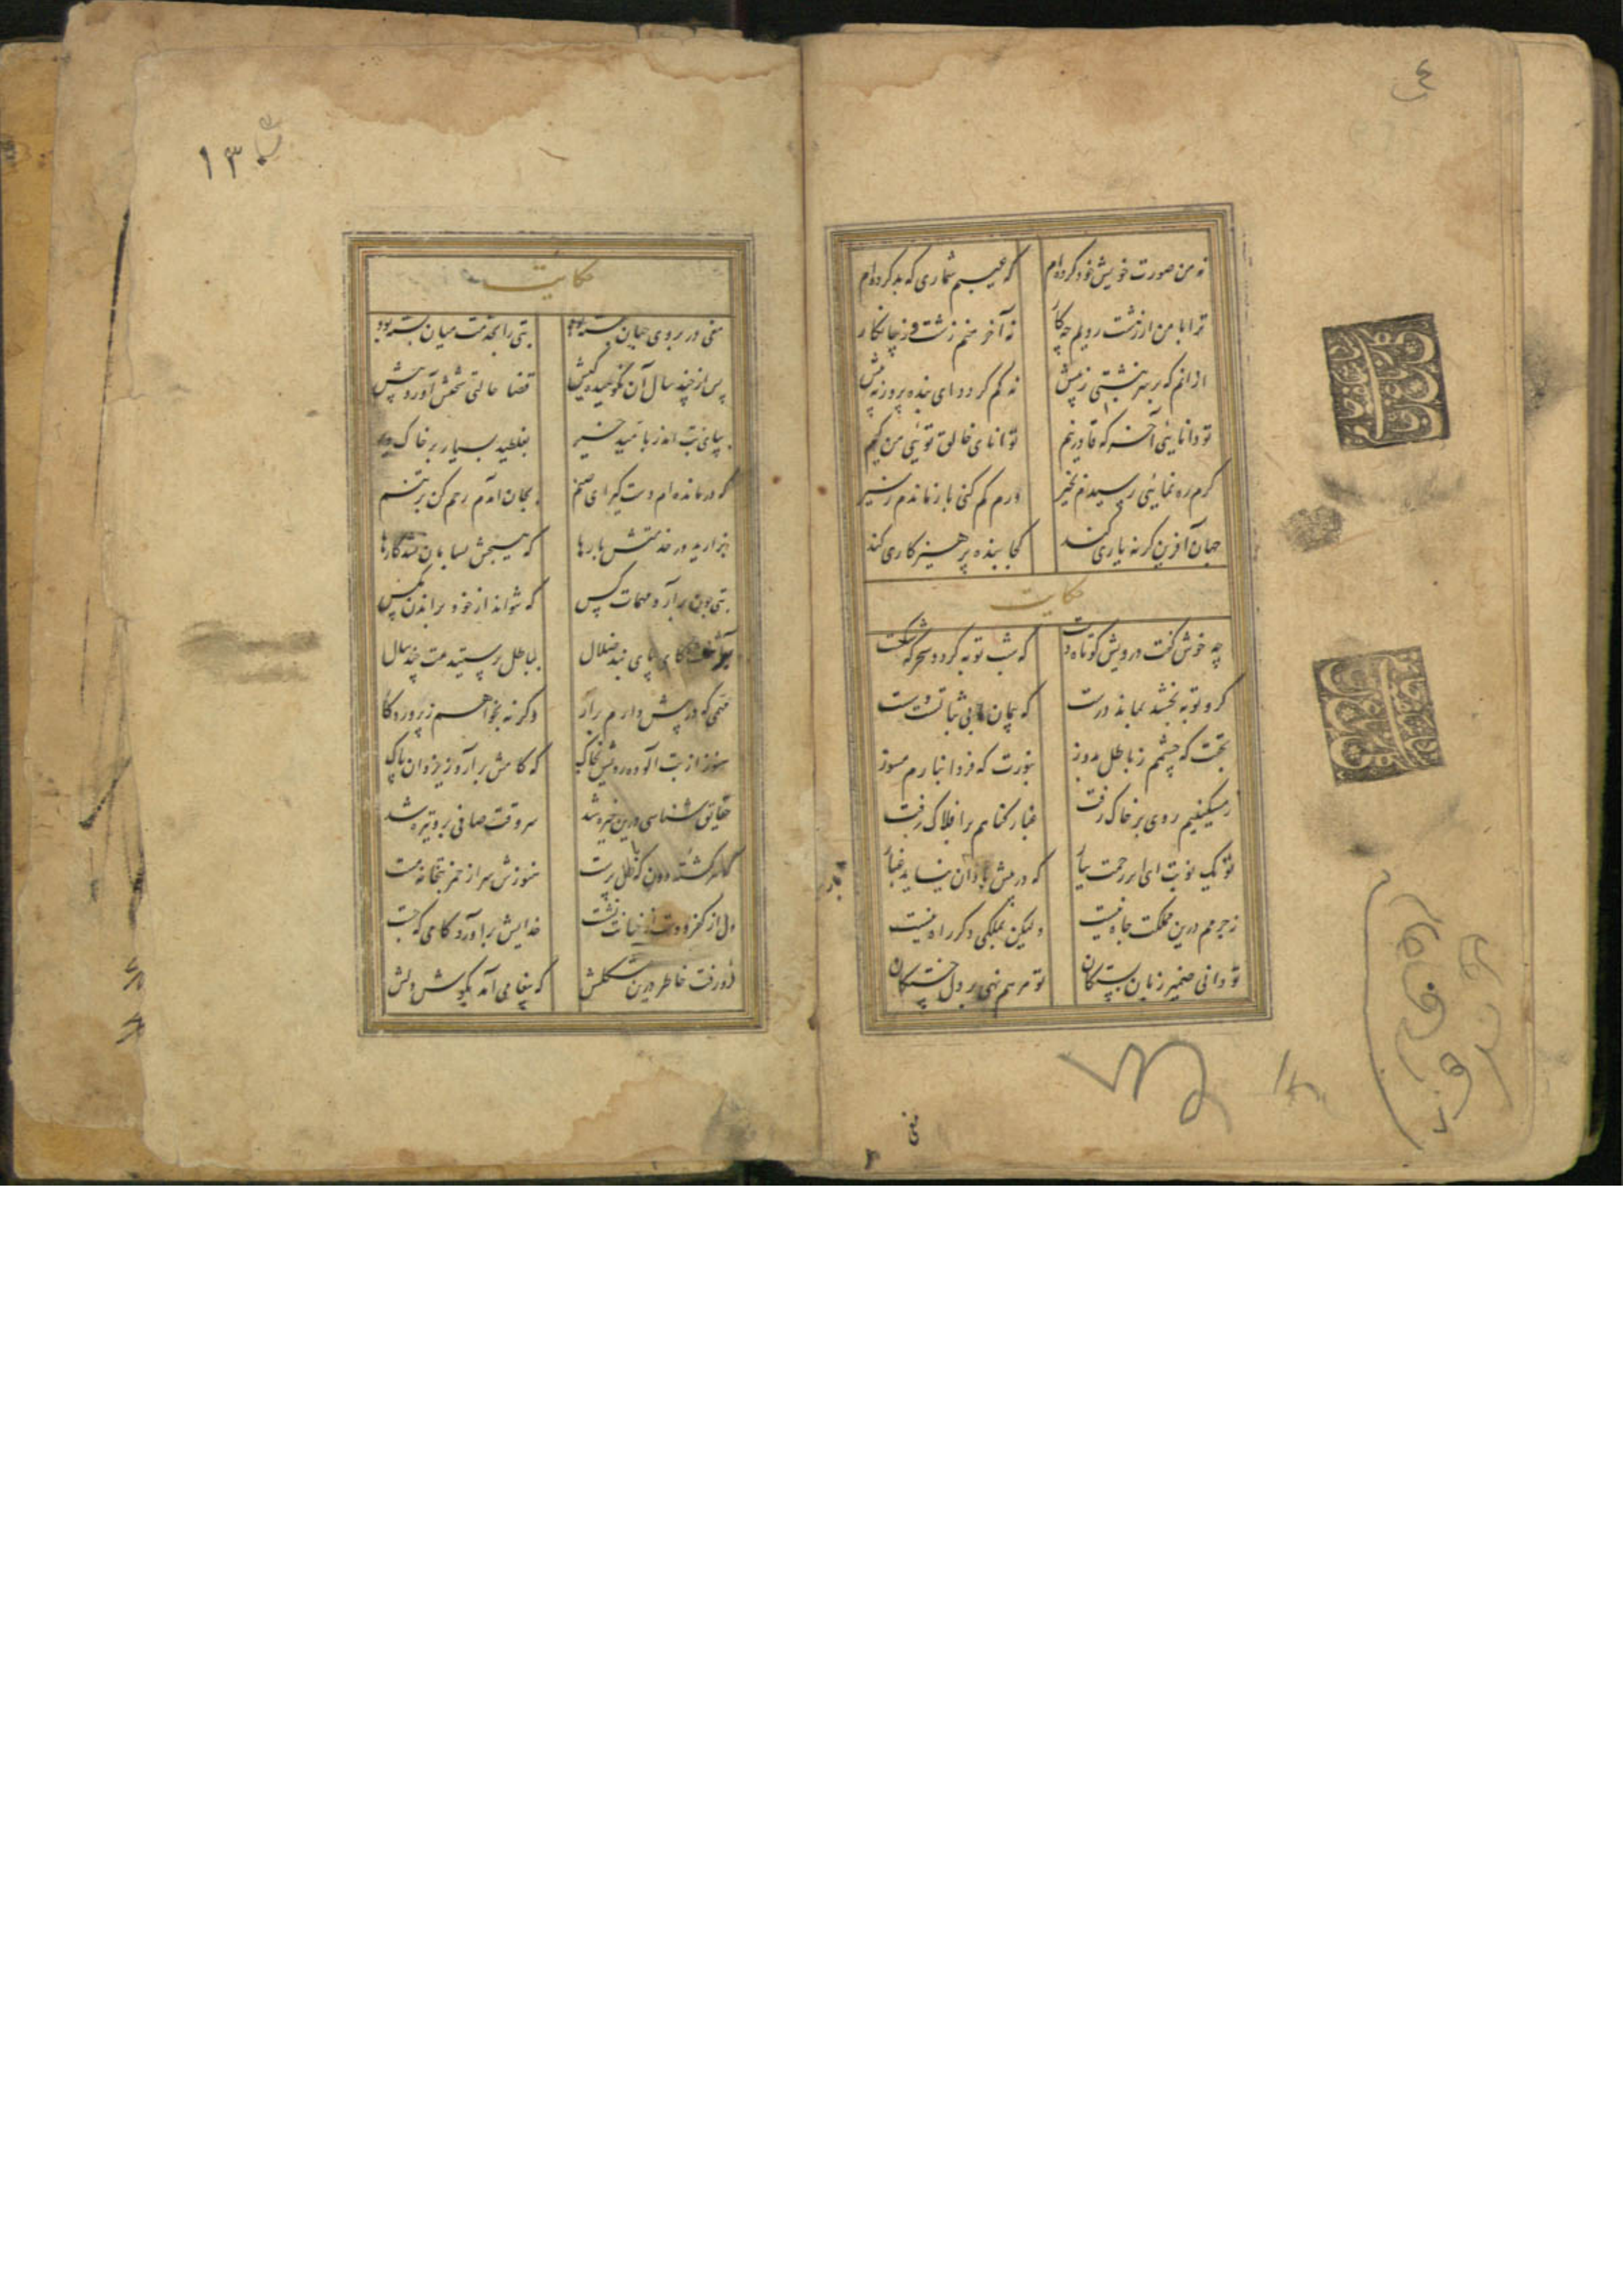 نه من صورت خویش خود کرده‌ام که عیبم شماری که بد کرده‌ام
ترا با من ار زشت رویم چه کار نه آخر منم زشت و زیبا نگار
از آنم که بر سر نبشتی ز پیش نه کم کردم ای بنده پرور نه بیش
تو دانایی آخر که قادر نیم توانای خالق تویی من کیم
گرم ره نمایی رسیدم بخیر ورم گم کنی باز ماندم ز سیر
جهان آفرین گر نه یاری کند کجا بنده پرهیزکاری کند
حکایت
چه خوش گفت درویش کوتاه دست که شب توبه کرد و سحرگه شکست
گر او توبه بخشد بماند درست که پیمان ما بی ثباتست و سست
بحقت که چشمم ز باطل بدوز بنورت که فردا بنارم مسوز
ز مسکینیم روی بر خاک رفت غبار گناهم بر افلاک رفت
تو یک نوبت ای ابر رحمت ببار که در پیش باران نپاید غبار
ز جرمم درین مملکت جاه نیست ولیکن بملکی دگر راه نیست
تو دانی ضمیر زبان بستگان تو مرهم نهی بر دل خستگان
حکایت
مغی در بروی جهان بسته بود بتی را بخدمت میان بسته بود
پس از چند سال آن نکوهیده کیش قضا حالتی صعبش آورد پیش
بپای بت اندر بامید خیر بغلطید بیچاره بر خاک دیر
که درمانده‌ام دست گیر ای صنم بجان آمدم رحم کن بر تنم
بزارید در خدمتش بارها که هیچش بسامان نشد کارها
بتی چون برآرد مهمات کس که نتواند از خود براندن مگس
برآشفت کای پای بند ضلال بباطل پرستیدمت چند سال
مهمی که در پیش دارم برآر وگرنه بخواهم ز پروردگار
هنوز از بت آلوده رویش بخاک که کامش برآورد یزدان پاک
حقایق شناسی درین خیره شد سر وقت صافی برو تیره شد
که سرگشته دون باطل پرست هنوزش سر از خمر بتخانه مست
دل از کفر و دست از خیانت نشست خدایش برآورد کامی که جست
فرو رفت خاطر درین مشکلش که پیغامی آمد بگوش دلش
۱۳